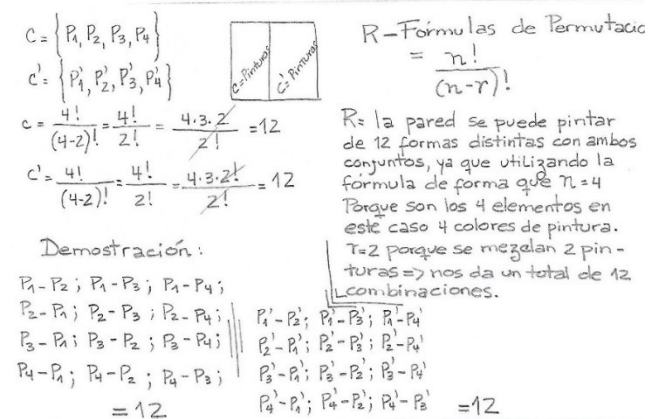 C = {P₁, P₂, P₃, P₄}
C' = {P'₁, P'₂, P'₃, P'₄}
C = 4!/(4-2)! = 4!/2! = 4·3·2/2! = 12
C' = 4!/(4-2)! = 4!/2! = 4·3·2!/2! = 12
C=Pinturas
C'=Pinturas
Demostración:
P₁-P₂ ; P₁-P₃ ; P₁-P₄ ;
P₂-P₁ ; P₂-P₃ ; P₂-P₄ ;
P₃-P₁ ; P₃-P₂ ; P₃-P₄ ;
P₄-P₁ ; P₄-P₂ ; P₄-P₃ ;
= 12
P₁'-P₂' ; P₁'-P₃' ; P₁'-P₄'
P₂'-P₁' ; P₂'-P₃' ; P₂'-P₄'
P₃'-P₁' ; P₃'-P₂' ; P₃'-P₄'
P₄'-P₁' ; P₄'-P₂' ; P₄'-P₃' =12
R-Fórmulas de Permutacio
= n!/(n-r)!
R= la pared se puede pintar
de 12 formas distintas con ambos
conjuntos, ya que utilizando la
fórmula de forma que n=4
Porque son los 4 elementos en
este caso 4 colores de pintura.
r=2 porque se mezclan 2 pin-
turas => nos da un total de 12
combinaciones.